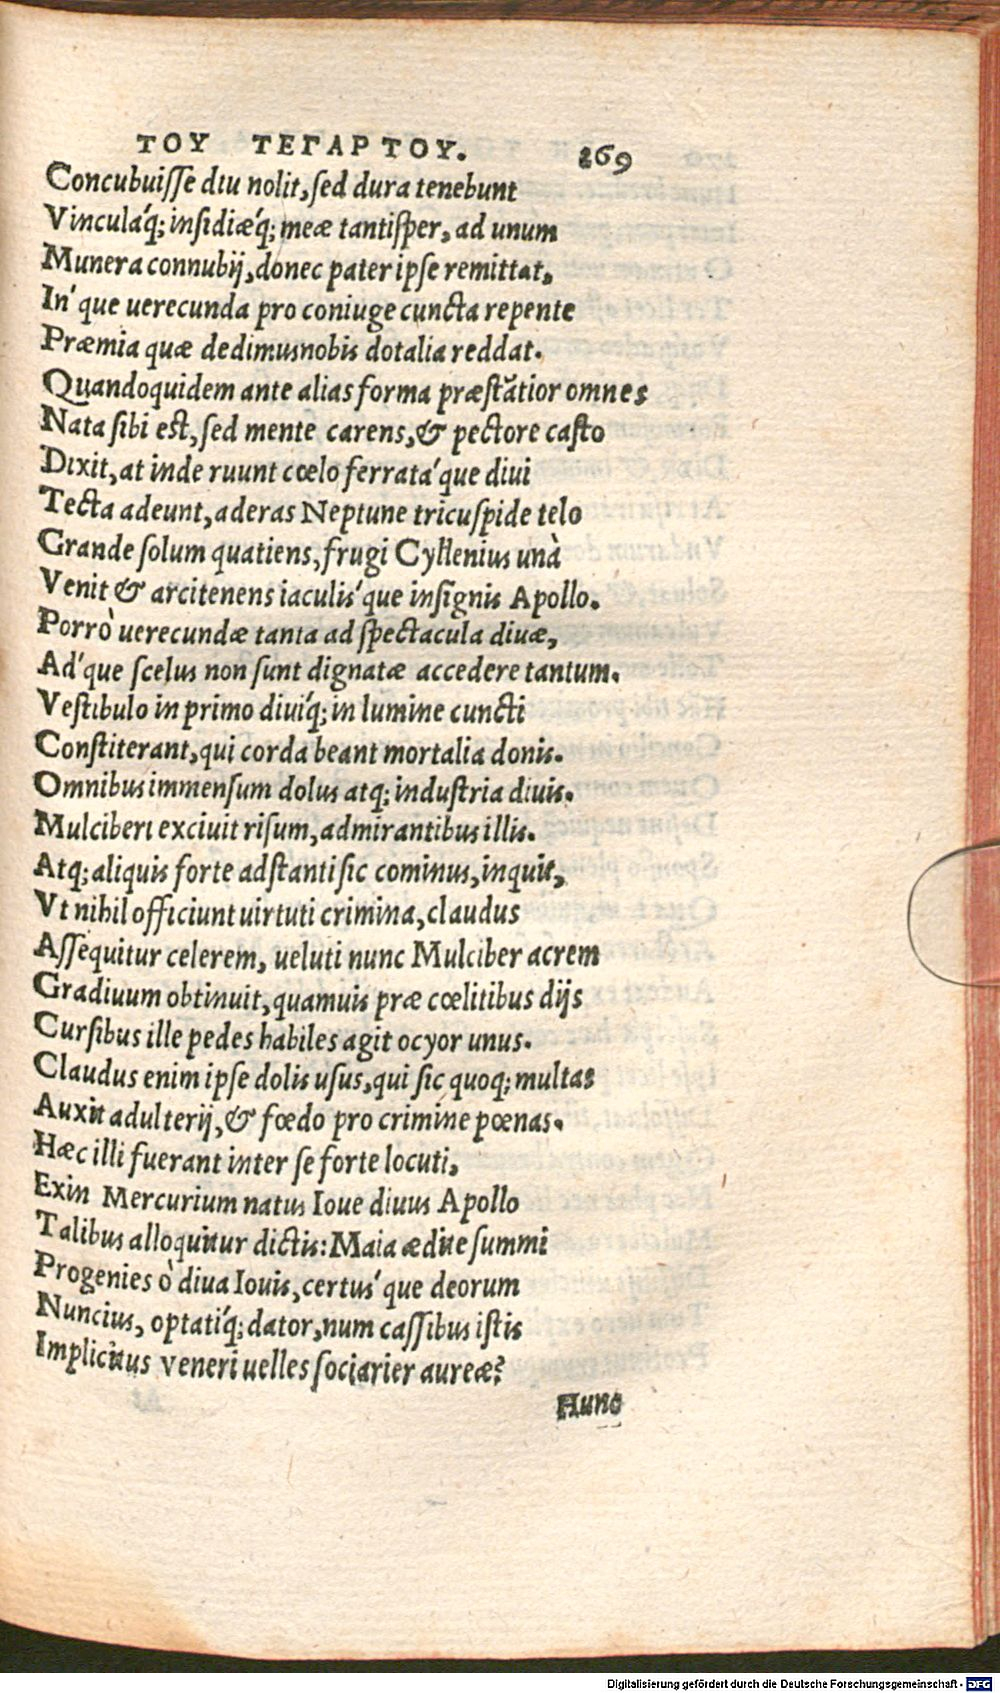 ΤΟΥ ΤΕΓΑΡΤΟΥ. 269
Concubuiſſe diu nolit, ſed dura tenebunt
Vinculáq; inſidiæ'q; meæ tantiſper, ad unum
Munera connubij, donec pater ipſe remittat,
In'que uerecunda pro coniuge cuncta repente
Præmia quæ dedimusnobis dotalia reddat.
Quandoquidem ante alias forma præſtãtior omnes
Nata ſibi est, ſed mente carens, & pectore caſto
Dixit, at inde ruunt cœlo ferrata'que diui
Tecta adeunt, aderas Neptune tricuſpide telo
Grande ſolum quatiens, frugi Cyllenius unà
Venit & arcitenens iaculis'que inſignis Apollo.
Porrò uerecundæ tanta ad ſpectacula diuæ,
Ad'que ſcelus non ſunt dignatæ accedere tantum.
Veſtibulo in primo diui'q; in lumine cuncti
Conſtiterant, qui corda beant mortalia donis.
Omnibus immenſum dolus atq; induſtria diuis.
Mulciberi exciuit riſum, admirantibus illis.
Atq; aliquis forte adſtanti ſic cominus, inquit,
Vt nihil officiunt uirtuti crimina, claudus
Aſſequitur celerem, ueluti nunc Mulciber acrem
Gradiuum obtinuit, quamuis præ cœlitibus dijs
Curſibus ille pedes habiles agit ocyor unus.
Claudus enim ipſe dolis uſus, qui ſic quoq; multas
Auxit adulterij, & fœdo pro crimine pœnas.
Hæc illi fuerant inter ſe forte locuti,
Exin Mercurium natus Ioue diuus Apollo
Talibus alloquitur dictis: Maia ædite ſummi
Progenies ò diua Iouis, certus'que deorum
Nuncius, optati'q; dator, num caſſibus iſtis
Implicitus veneri uelles ſociarier aureæ?
Hunc
Digitalisierung gefördert durch die Deutsche Forschungsgemeinschaft - DFG